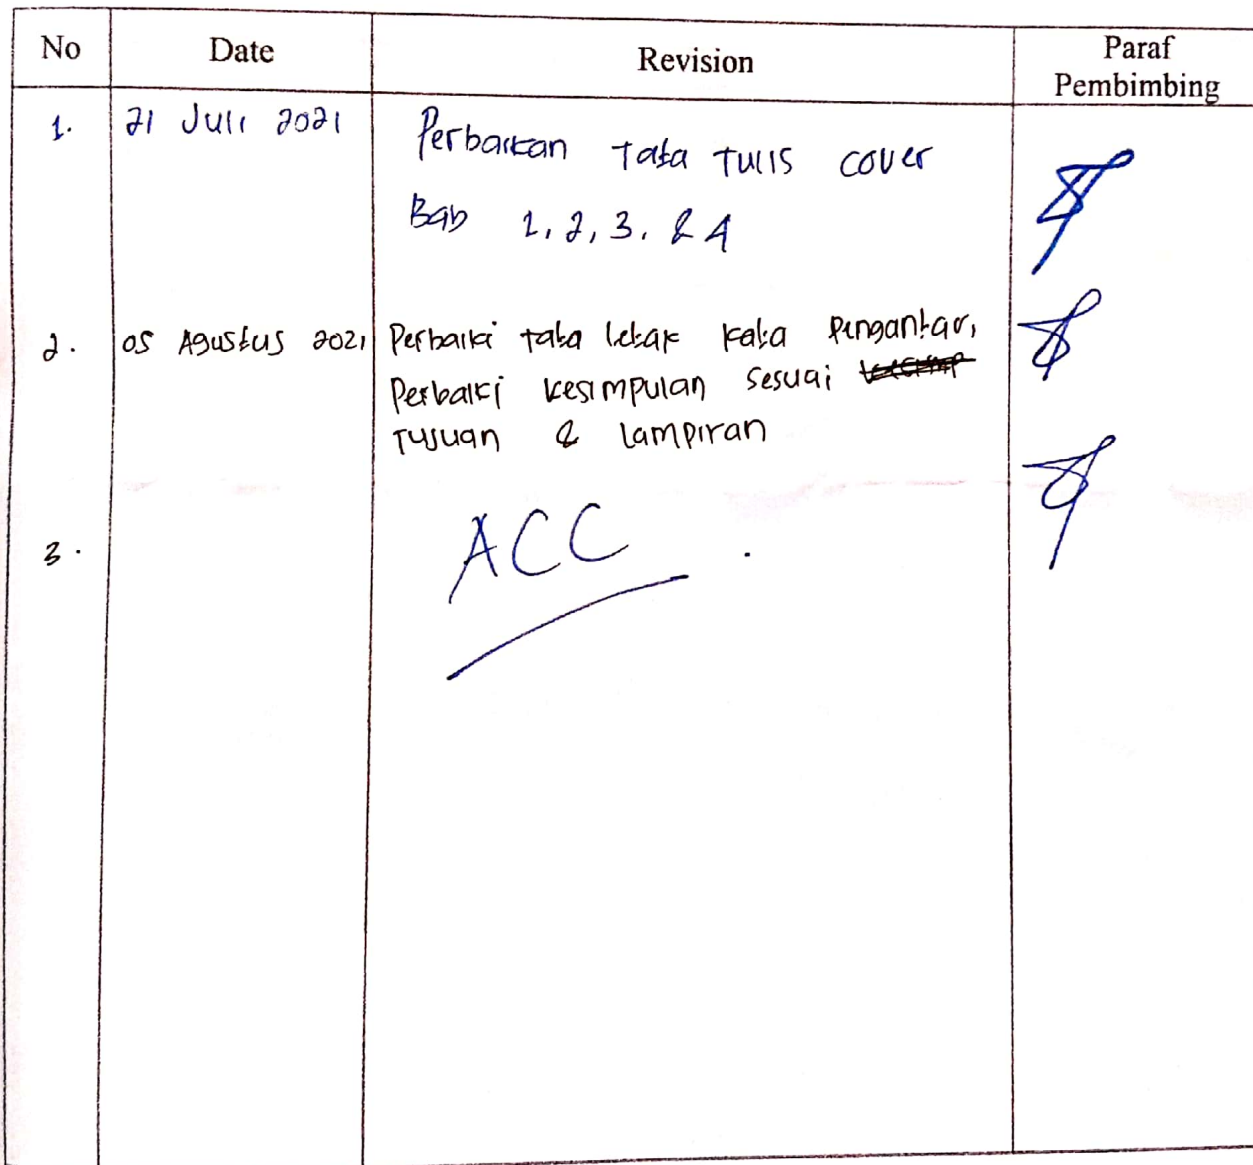 No Date Revision Paraf
Pembimbing
1. 21 Juli 2021 Perbaikan Tata Tulis cover
Bab 1, 2, 3. & 4
2. 05 Agustus 2021 Perbaiki tata letak kata pengantar,
Perbaiki kesimpulan sesuai
Tujuan & lampiran
3. ACC .